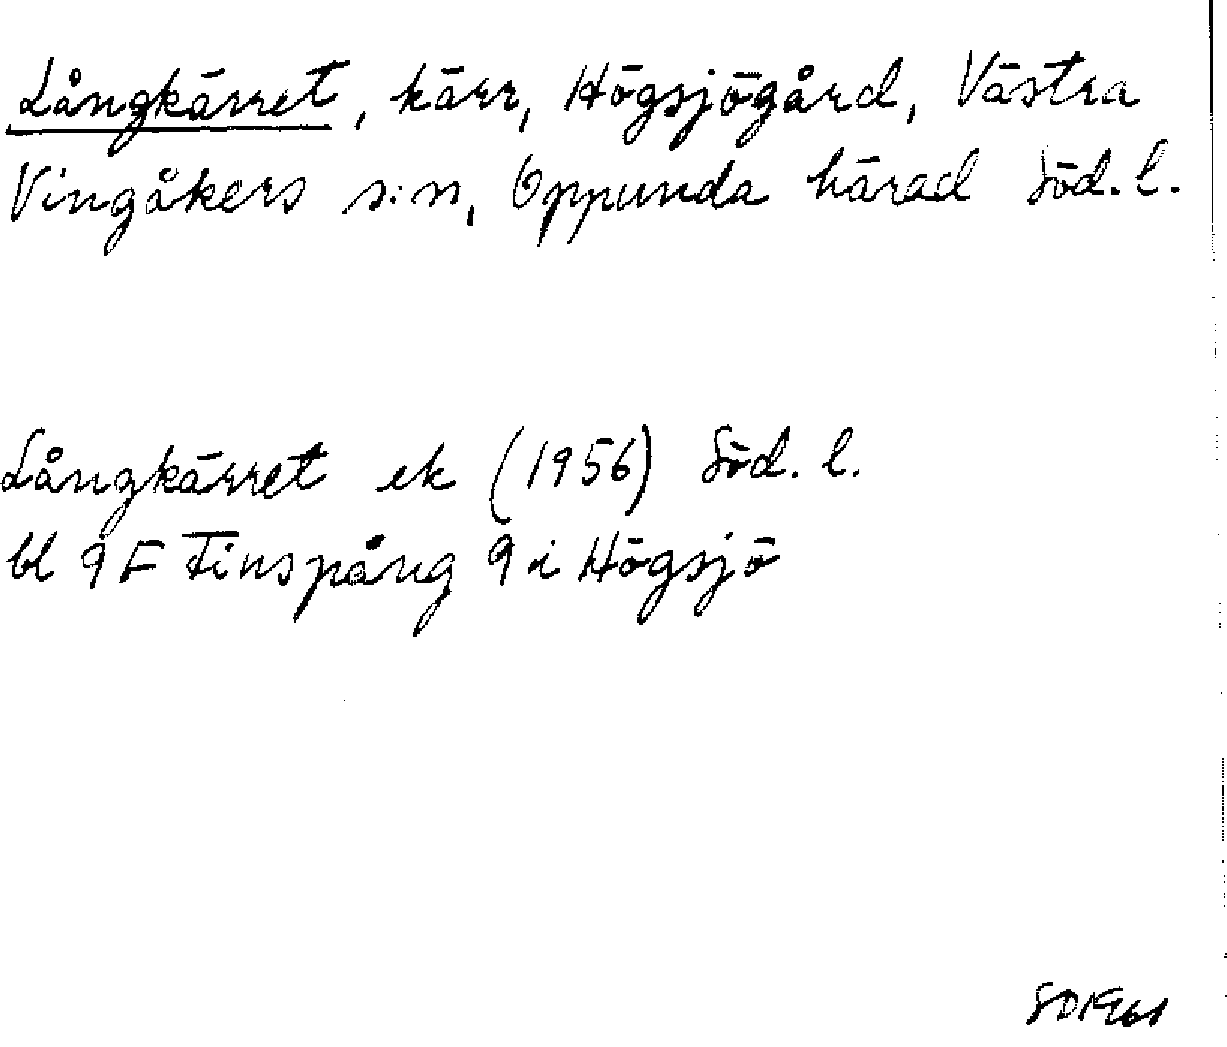 Långkärret, kärr, Högsjögård, Västra
Vingåkers s:n, Oppunda härad Söd. l.
Långkärret ek (1956) Söd. l.
bl 9F Finspång 9 i Högsjö
SD1961